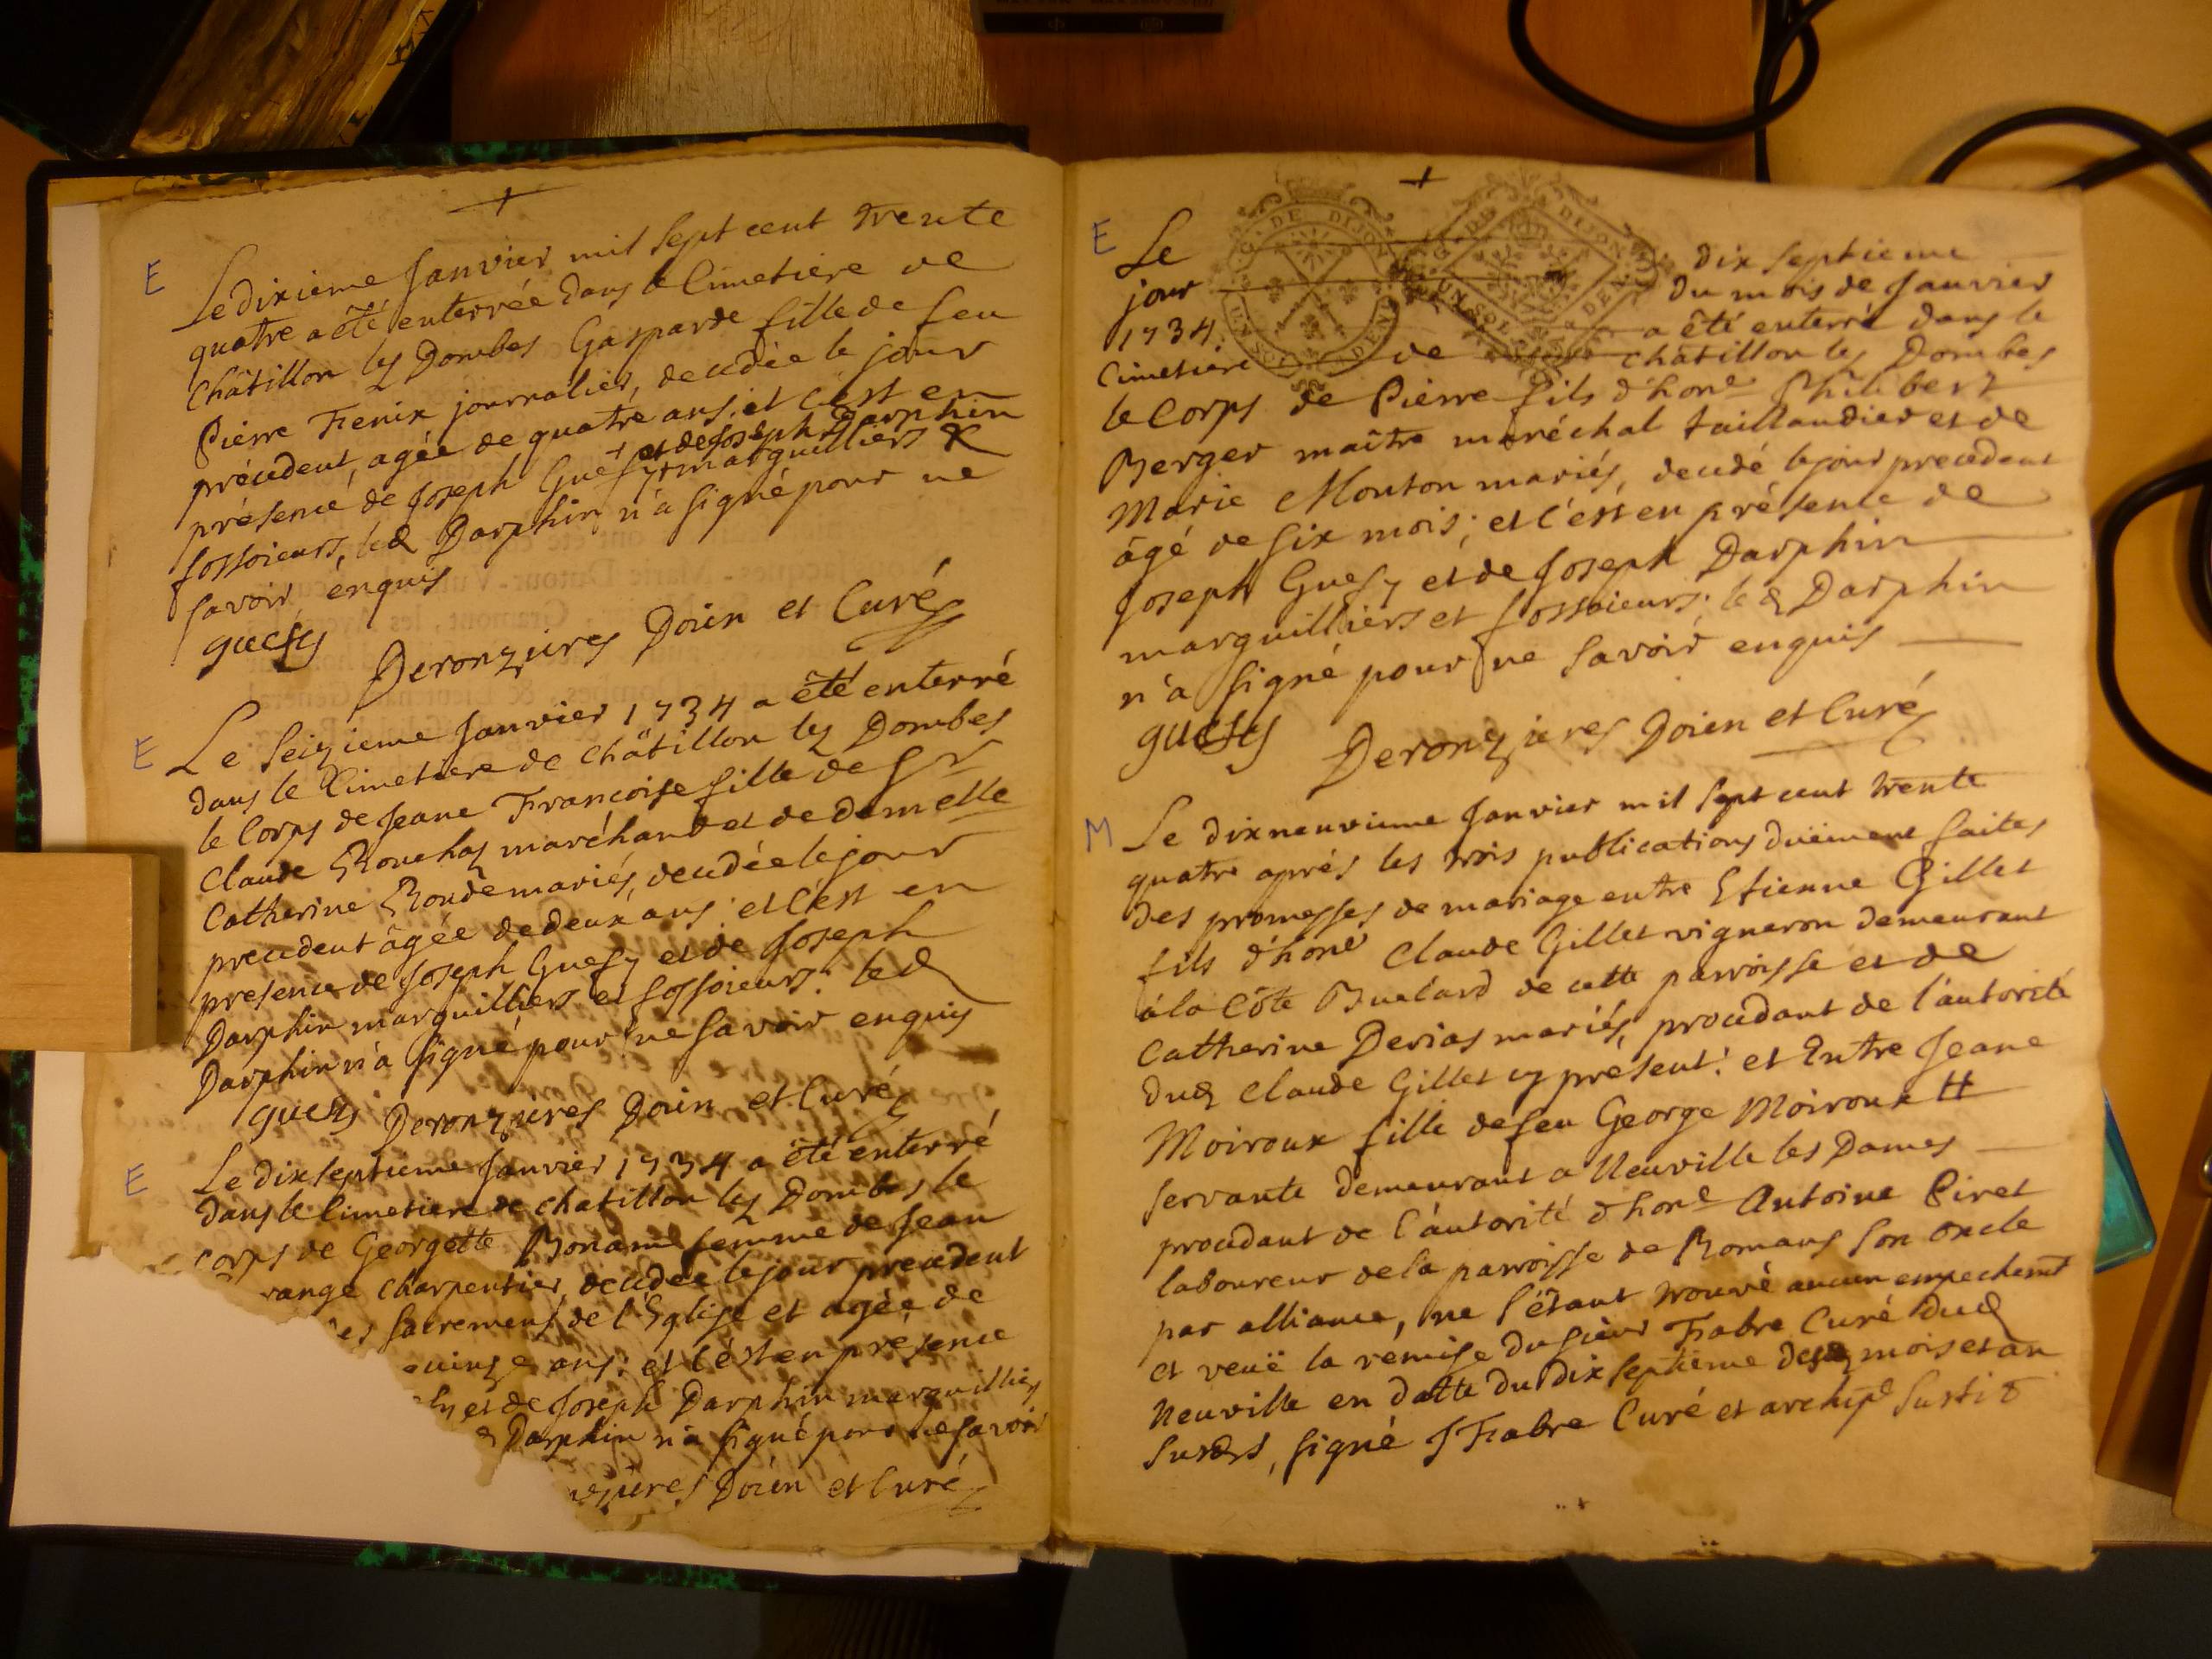 +
E
Le dixieme Janvier mil Sept cent trente
quatre a êté enterrée dans le Cimetiere de
Châtillon les Dombes Gasparde fille de feu
Pierre Fenix journalier, decedée le jour
précedent, agée de quatre ans, et c'est en
présence de Joseph Guesy et de Joseph Darphin
marguilliers &
fossoieurs, led Darphin n'a signé pour ne
savoir enquis
guesy Deronzieres Doien et Curé
E
Le Seizieme Janvier 1734 a êté enterré
dans le Cimetiere de Châtillon les Dombes
le Corps de Jeane Francoise fille de Sr
Claude Rouchas marchand et de demelle
Catherine Ronde mariés, decedée le jour
precedent âgée de deux ans; et c'est en
presence de Joseph Guesy et de Joseph
Darphin marguilliers et fossoieurs: led
Darphin n'a signé pour ne savoir enquis
guesy Deronzieres Doien et Curé
E
Le dixseptieme Janvier 1734 a êté enterré
dans le Cimetiere de chatillon les Dombes le
corps de Georgette Boname femme de Jean
range charpentier, decedée le jour precedent
es sacremens de l'Eglise et agée de
uinze ans; et c'est en présence
sy et de Joseph Darphin marguilliers
d Darphin n'a signé pour ne savoir
nzieres Doien et Curé
+
G. DE DIJON
UN SOL
G. DE DIJON
UN SOL
E
Le dix septieme
jour du mois de Janvier
1734 a êté enterré dans le
Cimetiere de châtillon les Dombes
le Corps de Pierre fils d'hone Philibert
Berger maître maréchal taillandier et de
Marie Monton mariés, decedé le jour precedent
âgé de six mois; et c'est en présence de
Joseph Guesy et de Joseph Darphin
marguilliers et fossoieurs: led Darphin
n'a signé pour ne savoir enquis
guesy Deronzieres Doien et Curé
M
Le dixneuvieme Janvier mil Sept cent trente
quatre aprés les trois publications duëment faites
des promesses de mariage entre Etienne Gillet
fils d'hone Claude Gillet vigneron demeurant
à la Côte Buelard de cette parroisse et de
Catherine Derias mariés, procedant de l'autorité
dud Claude Gillet cy présent: et Entre Jeane
Moiroux fille de feu George Moiroux #
servante demeurant a Neuville les Dames
procedant de l'autorité d'hone Antoine Piret
laboureur de la parroisse de Romans son oncle
par alliance, ne s'étant trouvé aucun empechemt
et veuë la remise du sieur Fabre Curé dud
Neuville en datte du dix septieme des mois et an
susds, signé J Fabre Curé et archipe